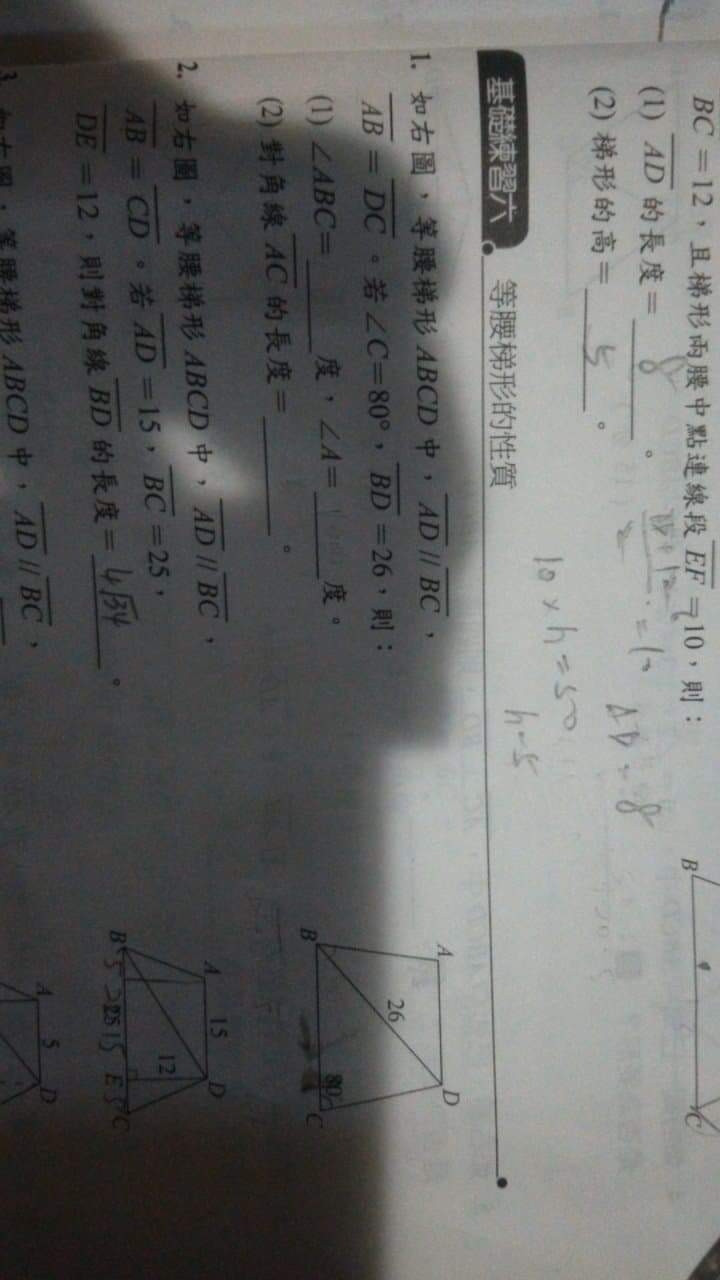 BC=12，且梯形兩腰中點連線段EF=10，則：
(1) AD的長度=8。
(2) 梯形的高=5。
=10 AD=8
10×h=50
h=5
B
C
基礎練習六 等腰梯形的性質
1. 如右圖，等腰梯形ABCD中，AD//BC，
AB=DC。若∠C=80°，BD=26，則：
(1) ∠ABC=____度，∠A=____度。
(2) 對角線AC的長度=____。
A
D
26
B
80°
C
2. 如右圖，等腰梯形ABCD中，AD//BC，
AB=CD。若AD=15，BC=25，
DE=12，則對角線BD的長度=4√34。
A 15 D
12
B 5 25 15 E 5 C
3. 如右圖，等腰梯形ABCD中，AD//BC，
A 5 D